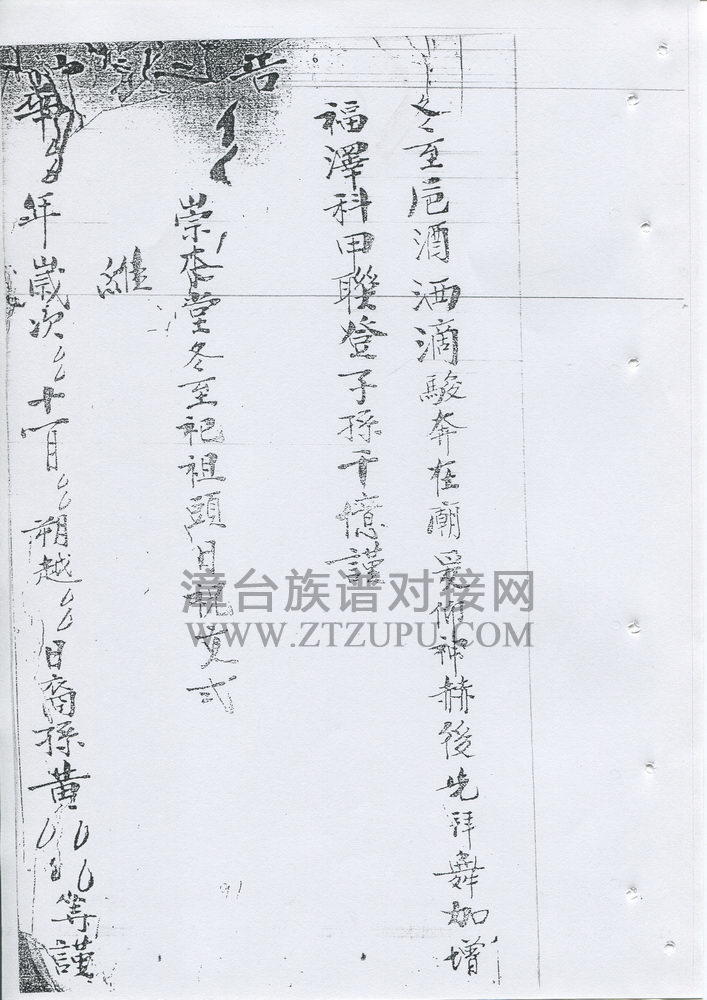 冬至卮酒洒滴駿奔在廟爰仰神赫後先拜舞加增
福澤科甲聯登子孫千億謹
崇本堂冬至祀祖頭目祝文式
維
年歲次〻十一月〻朔越〻日裔孫黃〻〻等謹
漳台族谱对接网
WWW.ZTZUPU.COM